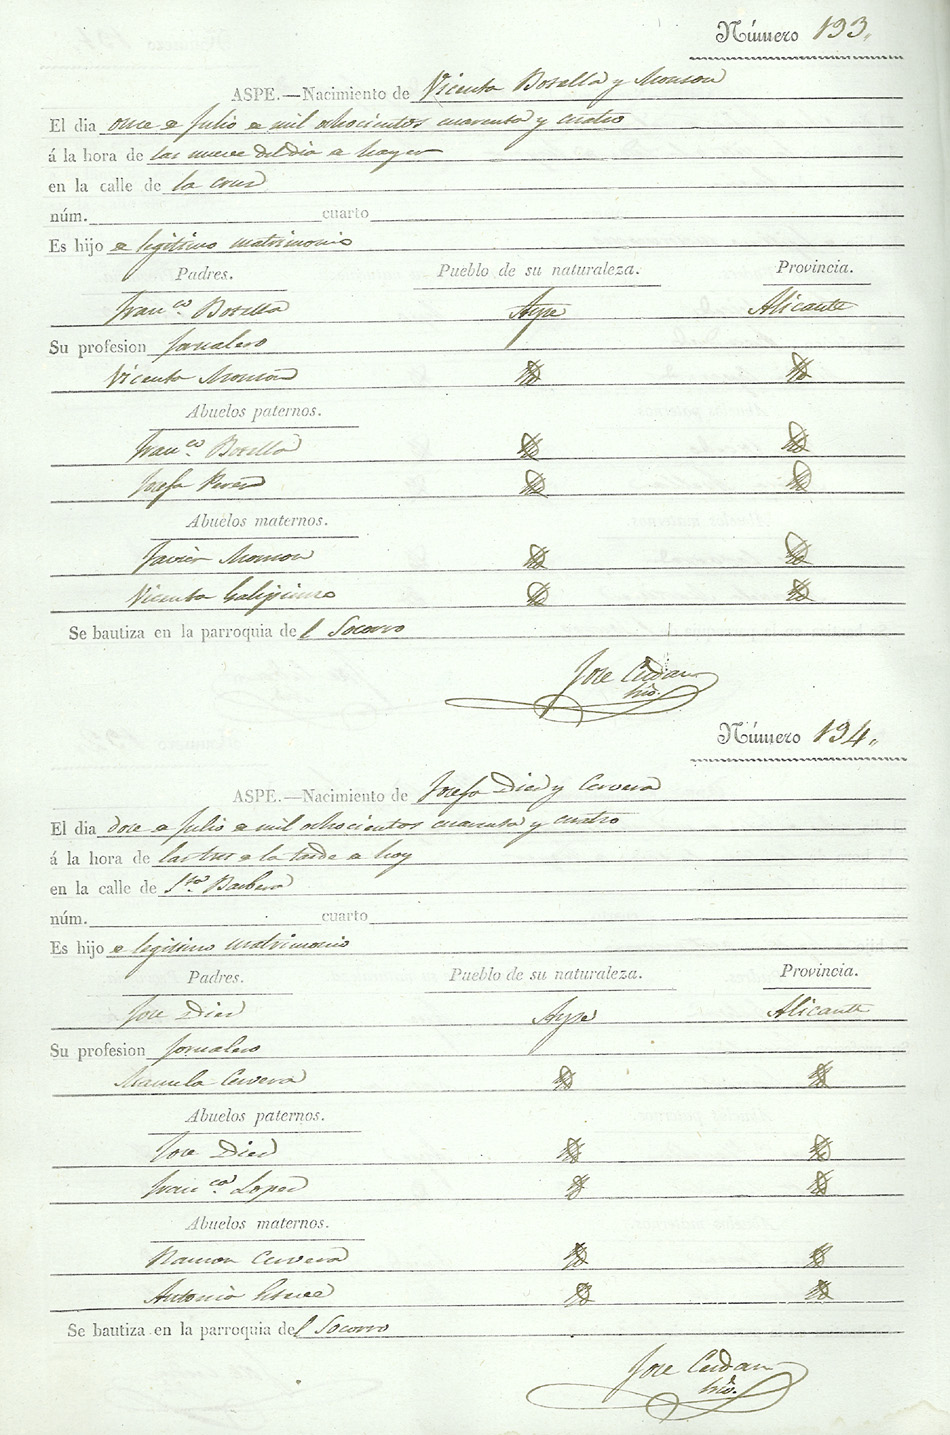 Número 193.
ASPE.—Nacimiento de Vicenta Botella y Monzon
El dia once de Julio de mil ochocientos cuarenta y cuatro
á la hora de las nueve del dia de hayer
en la calle de la cruz
núm. cuarto
Es hijo de legitimo matrimonio
Padres. Pueblo de su naturaleza. Provincia.
Fran.co Botella Aspe Alicante
Su profesion Jornalero
Vicenta Monzon
Abuelos paternos.
Fran.co Botella
Josefa Perez
Abuelos maternos.
Javier Monzon
Vicenta
Se bautiza en la parroquia del Socorro
Jose Cerdan
Número 194.
ASPE.—Nacimiento de Josefa Diez y Cervera
El dia doce de Julio de mil ochocientos cuarenta y cuatro
á la hora de las tres de la tarde de hoy
en la calle de Sta. Barbera
núm. cuarto
Es hijo de legitimo matrimonio
Padres. Pueblo de su naturaleza. Provincia.
Jose Diez Aspe Alicante
Su profesion Jornalero
Manuela Cervera
Abuelos paternos.
Jose Diez
Fran.ca Lopez
Abuelos maternos.
Ramon Cervera
Antonia
Se bautiza en la parroquia del Socorro
Jose Cerdan